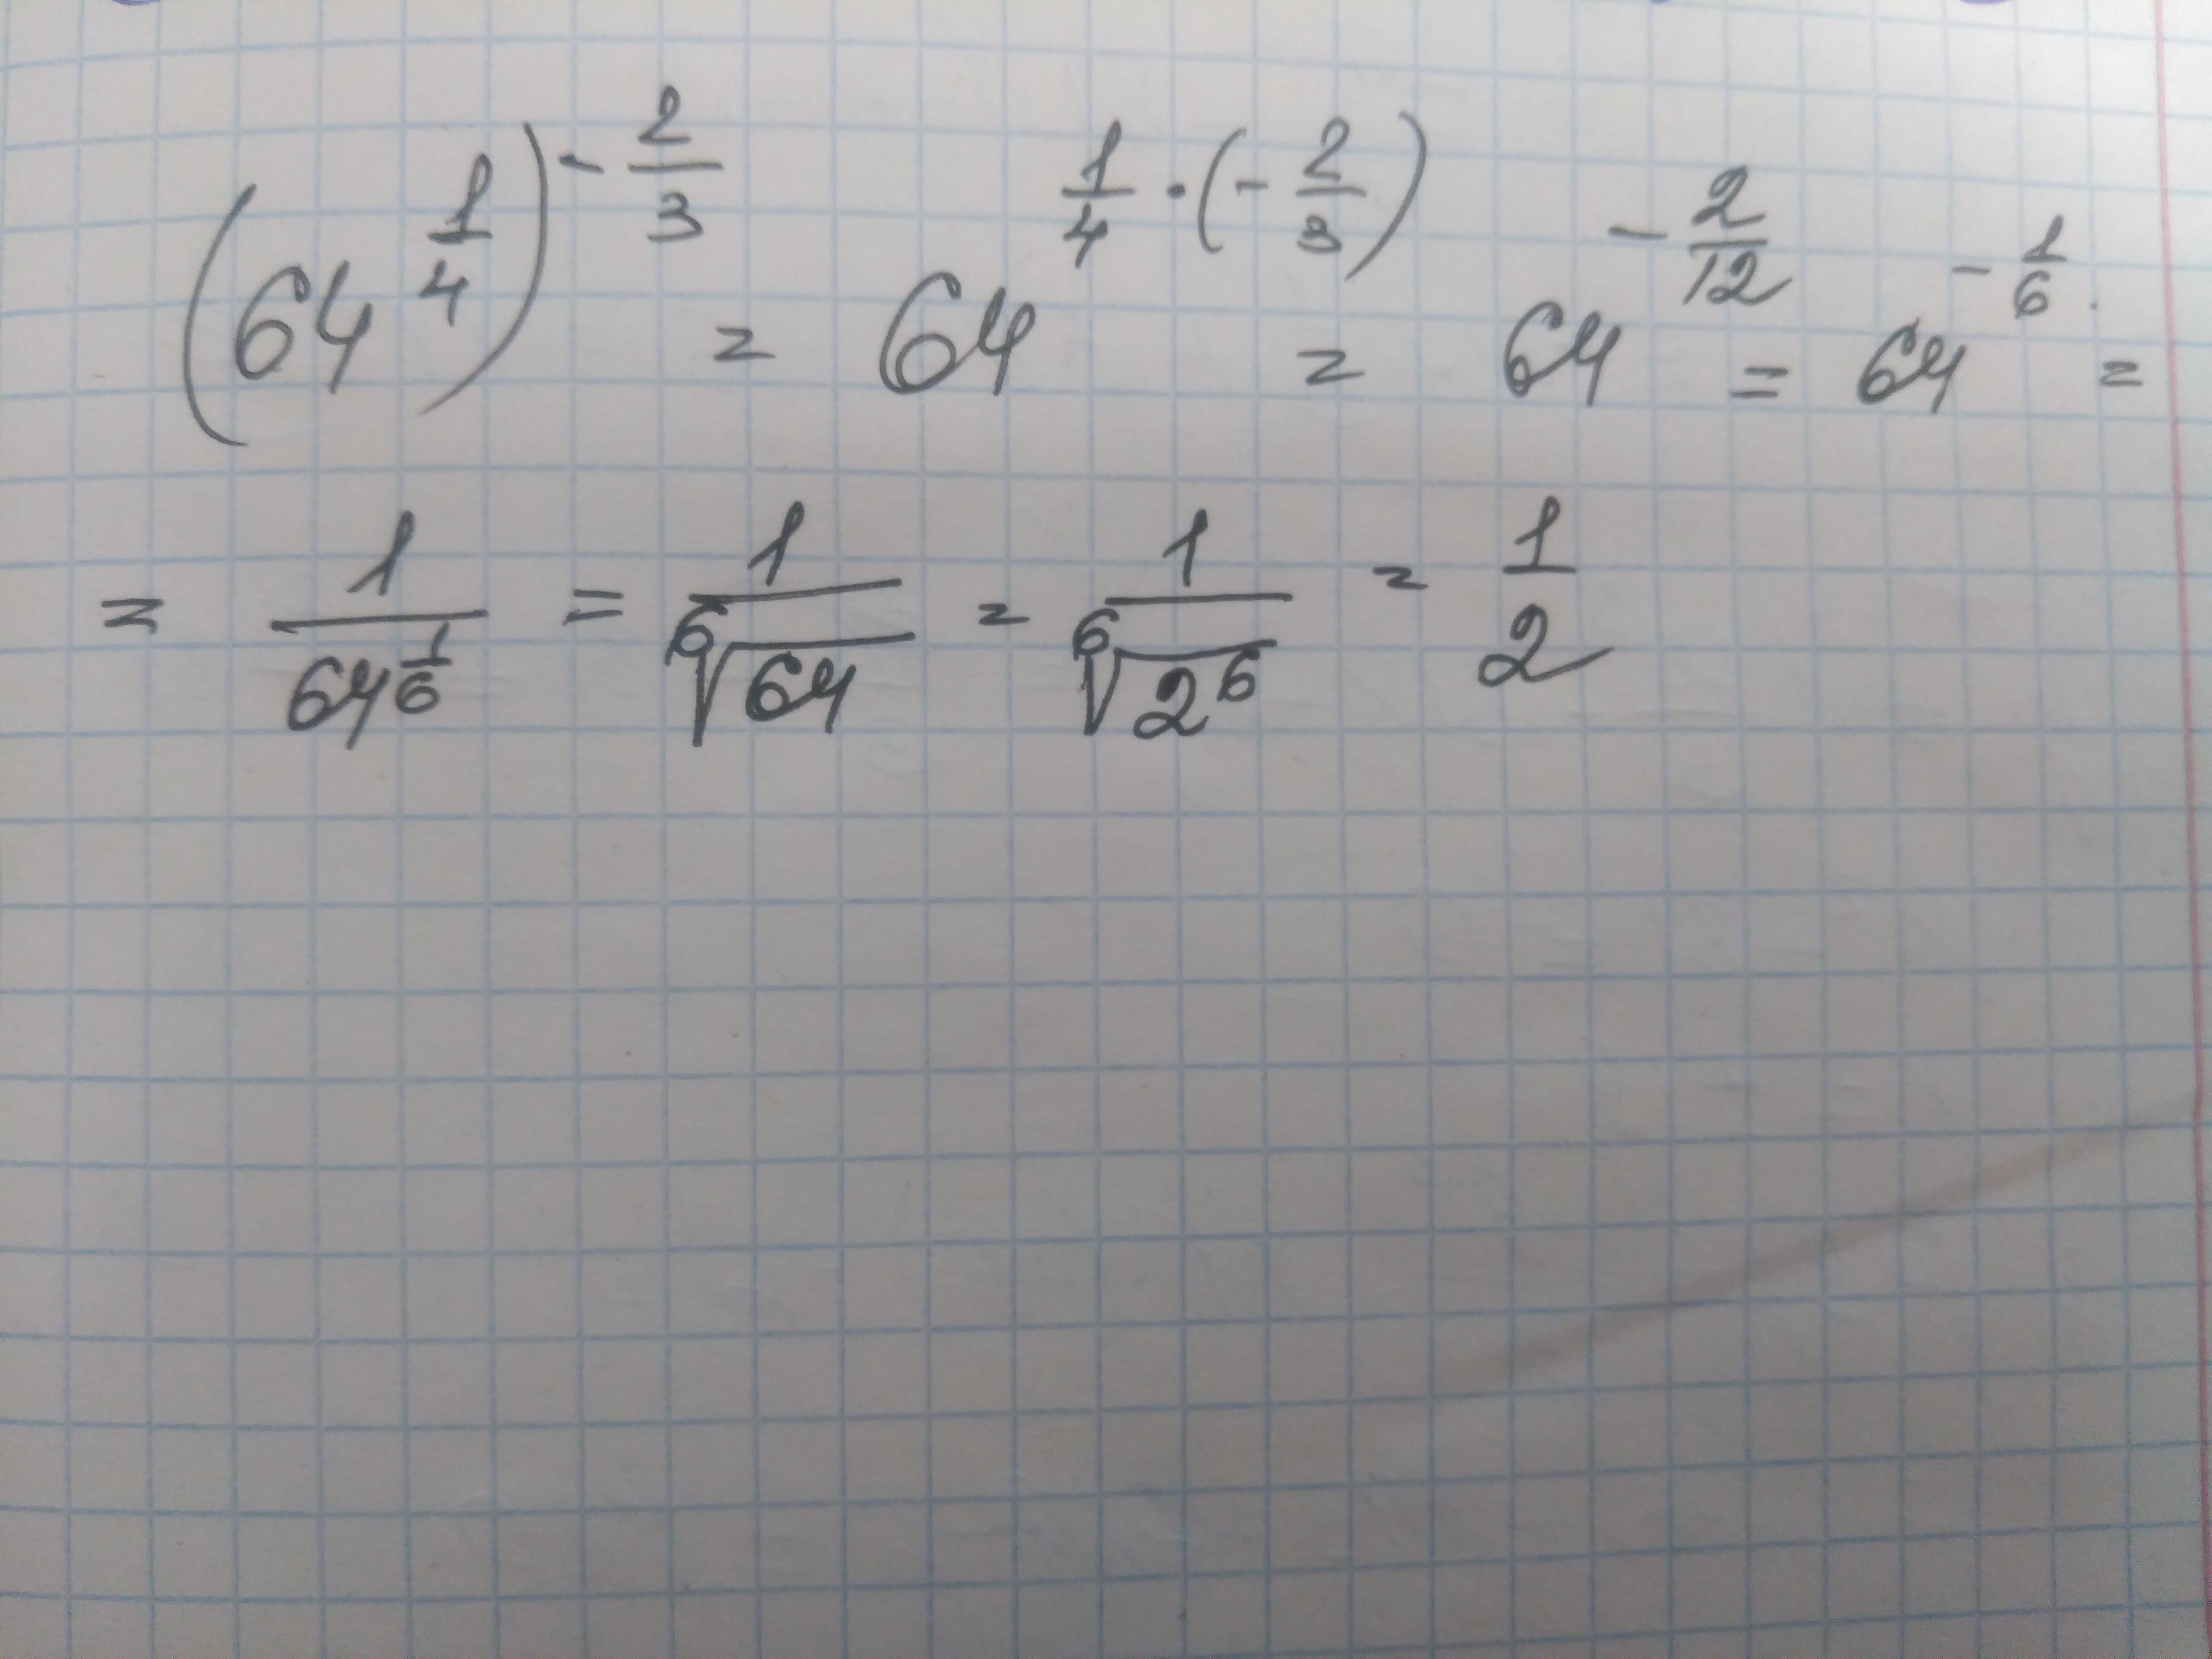 (64^{\frac{1}{4}})^{-\frac{2}{3}} = 64^{\frac{1}{4} \cdot (-\frac{2}{3})} = 64^{-\frac{2}{12}} = 64^{-\frac{1}{6}} =
= \frac{1}{64^{\frac{1}{6}}} = \frac{1}{\sqrt[6]{64}} = \frac{1}{\sqrt[6]{2^6}} = \frac{1}{2}